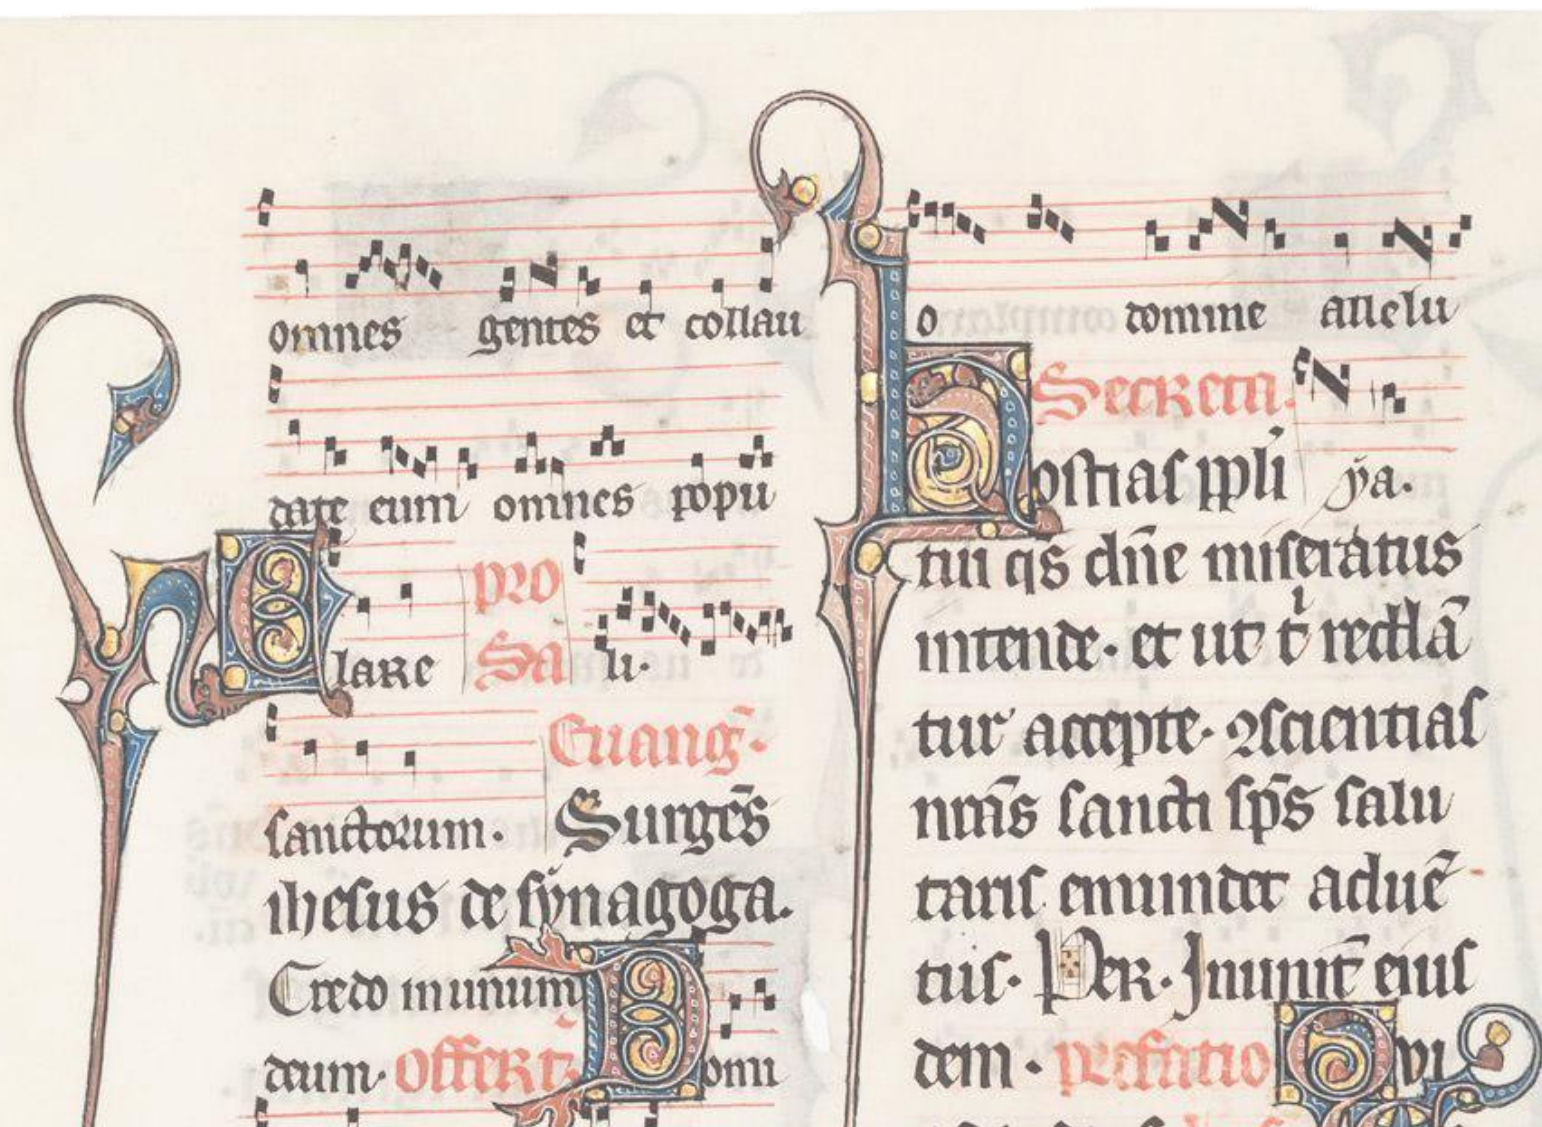 omnes gentes et collau
date eum omnes popu
Clare pro
Sa li.
sanctorum. Euang̃.
Surgẽs
ihesus de synagoga.
Credo in unum
deum. Offert̃. Domi
o domine allelu
Secreta.
Hostias ppli ya.
tui qs dñe miseratus
intende. et ut ti reddã
tur accepte. ꝯscientias
nrãs sancti sp̃s salu
taris emundet aduẽ
tus. Per. In unit̃ eius
dem. prefatio Qui